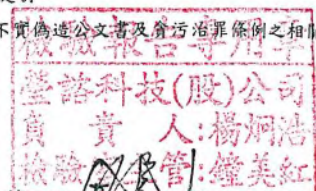 不實偽造公文書及貪污治罪條例之相關
檢驗報告專用章
瑩諮科技(股)公司
負責人:楊炯浩
檢驗 管:鐘美紅